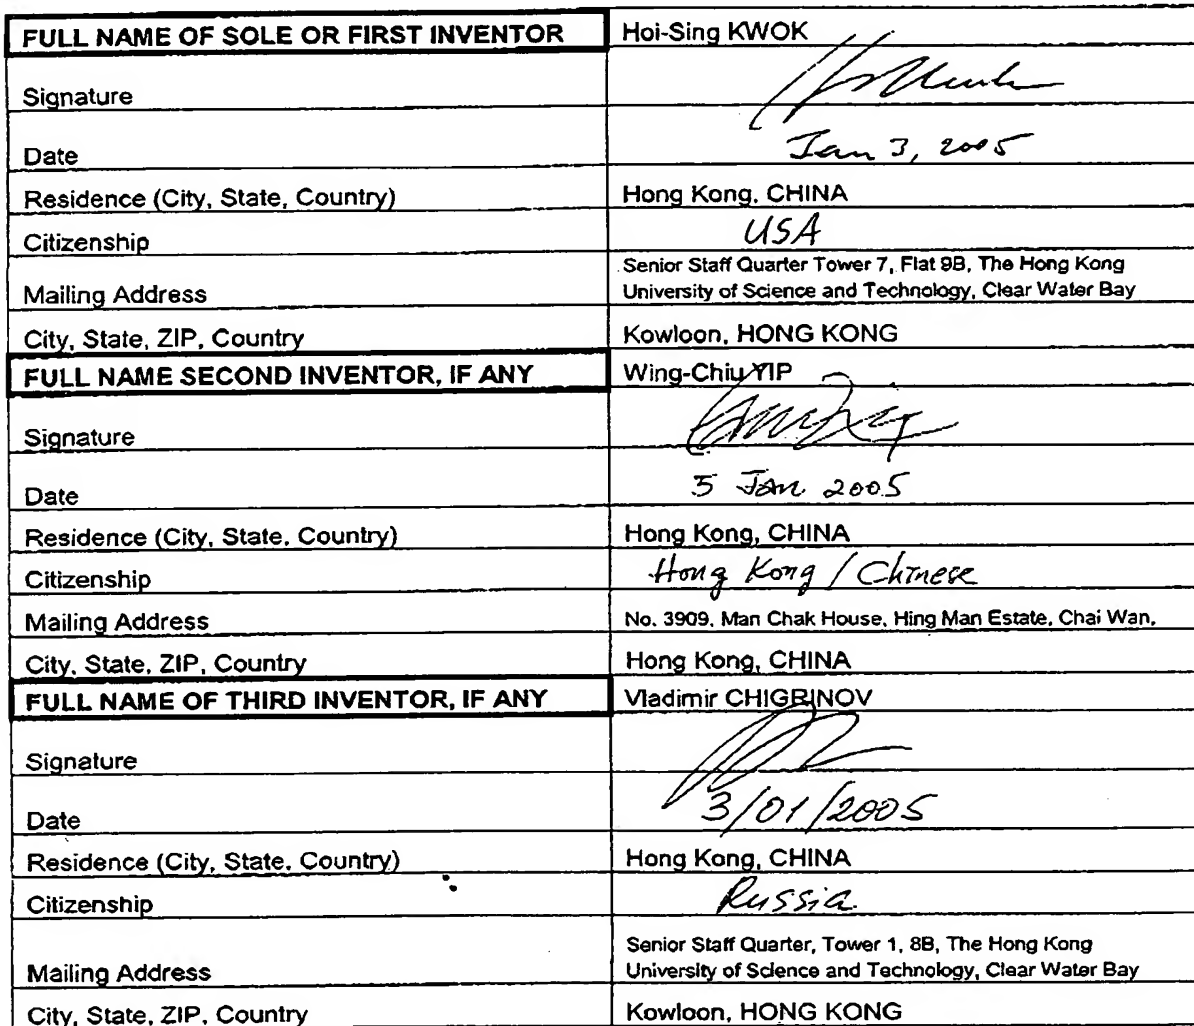 FULL NAME OF SOLE OR FIRST INVENTOR Hoi-Sing KWOK
Signature
Date Jan 3, 2005
Residence (City, State, Country) Hong Kong, CHINA
Citizenship USA
Senior Staff Quarter Tower 7, Flat 9B, The Hong Kong
Mailing Address University of Science and Technology, Clear Water Bay
City, State, ZIP, Country Kowloon, HONG KONG
FULL NAME SECOND INVENTOR, IF ANY Wing-Chiu YIP
Signature
Date 5 Jan 2005
Residence (City, State, Country) Hong Kong, CHINA
Citizenship Hong Kong / Chinese
Mailing Address No. 3909, Man Chak House, Hing Man Estate, Chai Wan,
City, State, ZIP, Country Hong Kong, CHINA
FULL NAME OF THIRD INVENTOR, IF ANY Vladimir CHIGRINOV
Signature
Date 3/01/2005
Residence (City, State, Country) Hong Kong, CHINA
Citizenship Russia
Senior Staff Quarter, Tower 1, 8B, The Hong Kong
Mailing Address University of Science and Technology, Clear Water Bay
City, State, ZIP, Country Kowloon, HONG KONG